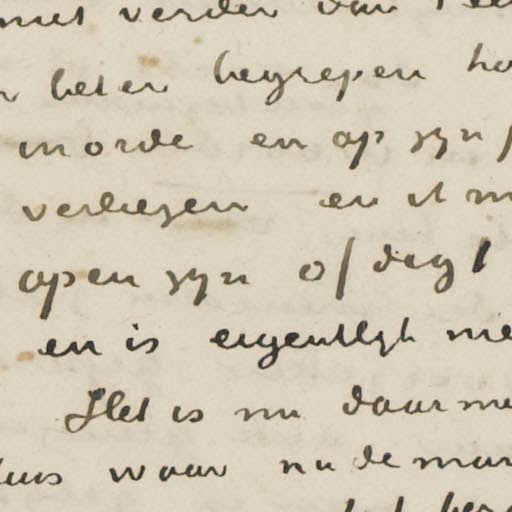 met verder van
beter begrepen
in orde en op zyn
verliezen en it
open zyn of digt
en is eigentlyk me
Het is nu daarme
huis waar nu de man